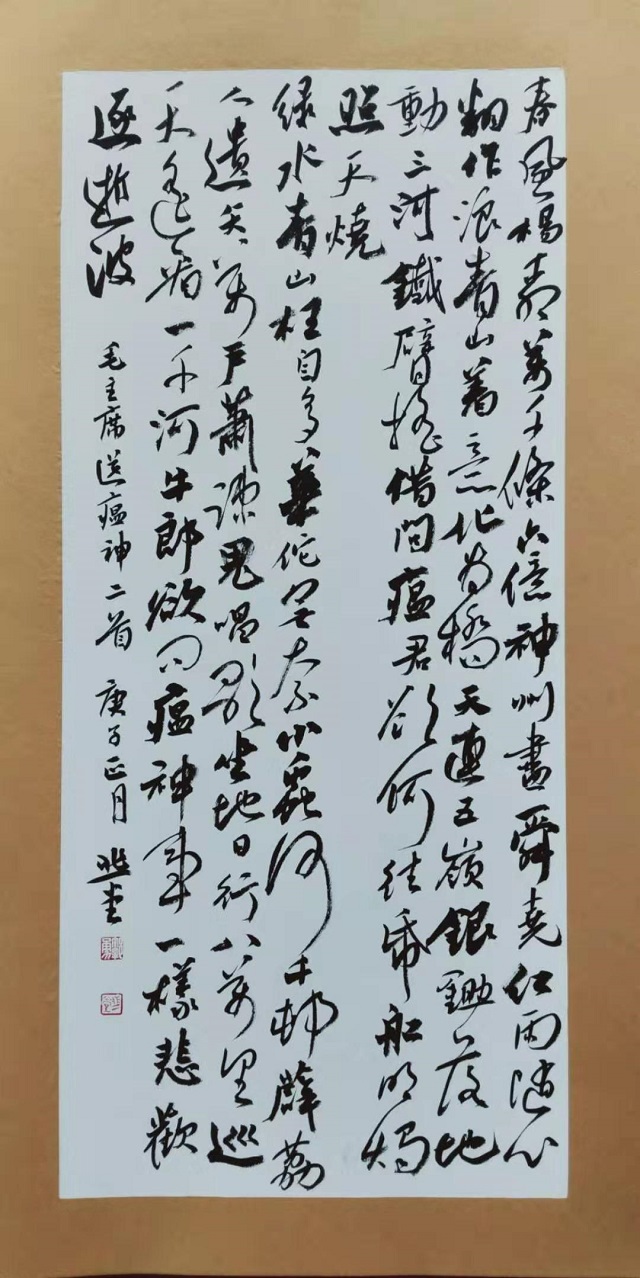 春風楊柳萬千條六億神州盡舜堯红雨随心
翻作浪青山着意化为橋天連五嶺銀鋤落地
動三河鐵臂摇借問瘟君欲何往纸船明燭
照天燒
绿水青山枉自多華佗無奈小蟲何千邨薜荔
人遺矢萬戶蕭疎鬼唱歌坐地日行八萬里巡
天遥看一千河牛郎欲问瘟神事一樣悲歡
逐逝波
毛主席送瘟神二首 庚子正月